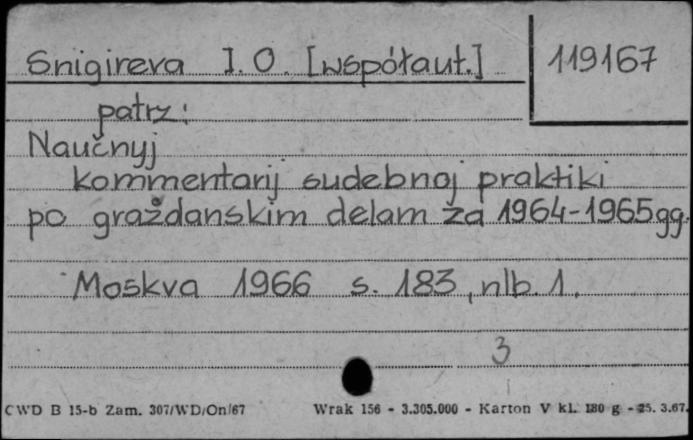 Snigireva I. O. [współaut.]
119167
patrz:
Naučnyj
kommentarij sudebnoj praktiki
po graždanskim delam za 1964-1965gg.
Moskva 1966 s. 183, nlb. 1.
3
CWD B 15-b Zam. 307/WD/On/67 Wrak 156 - 3.305.000 - Karton V kl. 180 g - 25. 3.67.